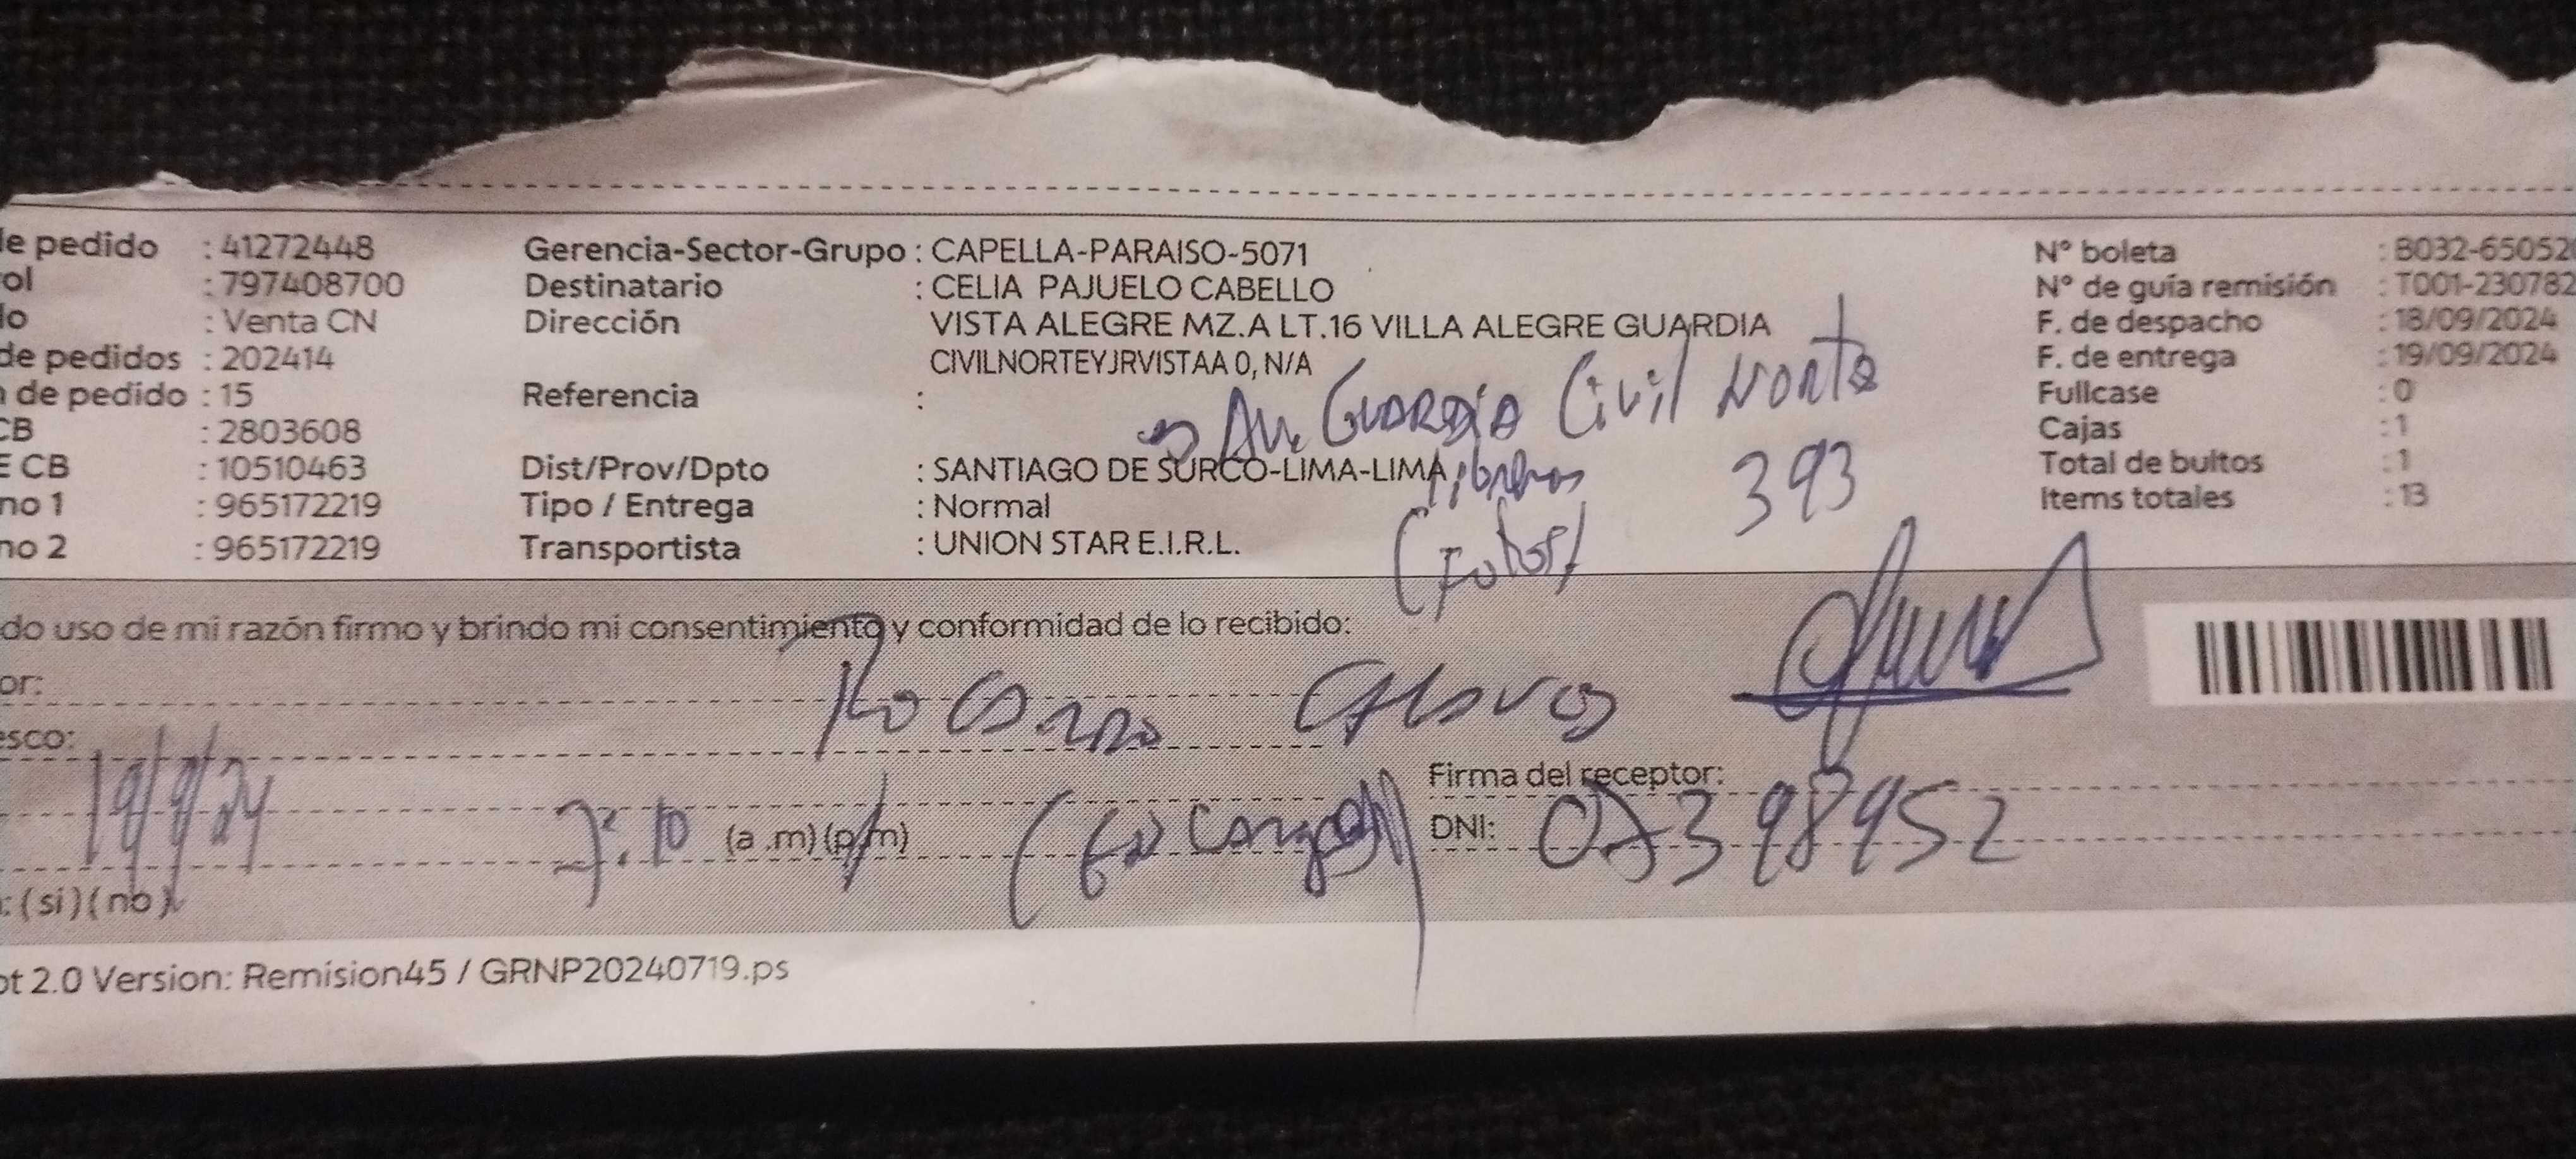 de pedido : 41272448 Gerencia-Sector-Grupo : CAPELLA-PARAISO-5071 Nº boleta : B032-65052
ol : 797408700 Destinatario : CELIA PAJUELO CABELLO Nº de guía remisión : T001-230782
lo : Venta CN Dirección VISTA ALEGRE MZ.A LT.16 VILLA ALEGRE GUARDIA F. de despacho : 18/09/2024
de pedidos : 202414 CIVILNORTEYJRVISTAA 0, N/A F. de entrega : 19/09/2024
de pedido : 15 Referencia : Fullcase : 0
Av. Guardia Civil Norte
CB : 2803608 Cajas : 1
E CB : 10510463 Dist/Prov/Dpto : SANTIAGO DE SURCO-LIMA-LIMA 393 Total de bultos : 1
no 1 : 965172219 Tipo / Entrega : Normal Items totales : 13
no 2 : 965172219 Transportista : UNION STAR E.I.R.L. (Fotos)
do uso de mi razón firmo y brindo mi consentimiento y conformidad de lo recibido:
or:
esco:
19/9/24 Firma del receptor:
:10 (a .m) (p.m) DNI: 07398952
: (si) (no)
ot 2.0 Version: Remision45 / GRNP20240719.ps